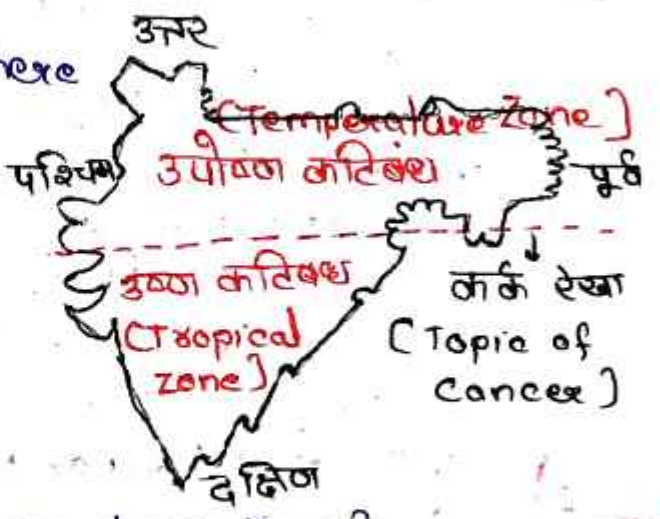 उत्तर
[Temperature Zone]
पश्चिम
उपोष्ण कटिबंध
पूर्व
उष्ण कटिबंध
(Tropical
zone)
कर्क रेखा
(Topic of
Cancer)
दक्षिण